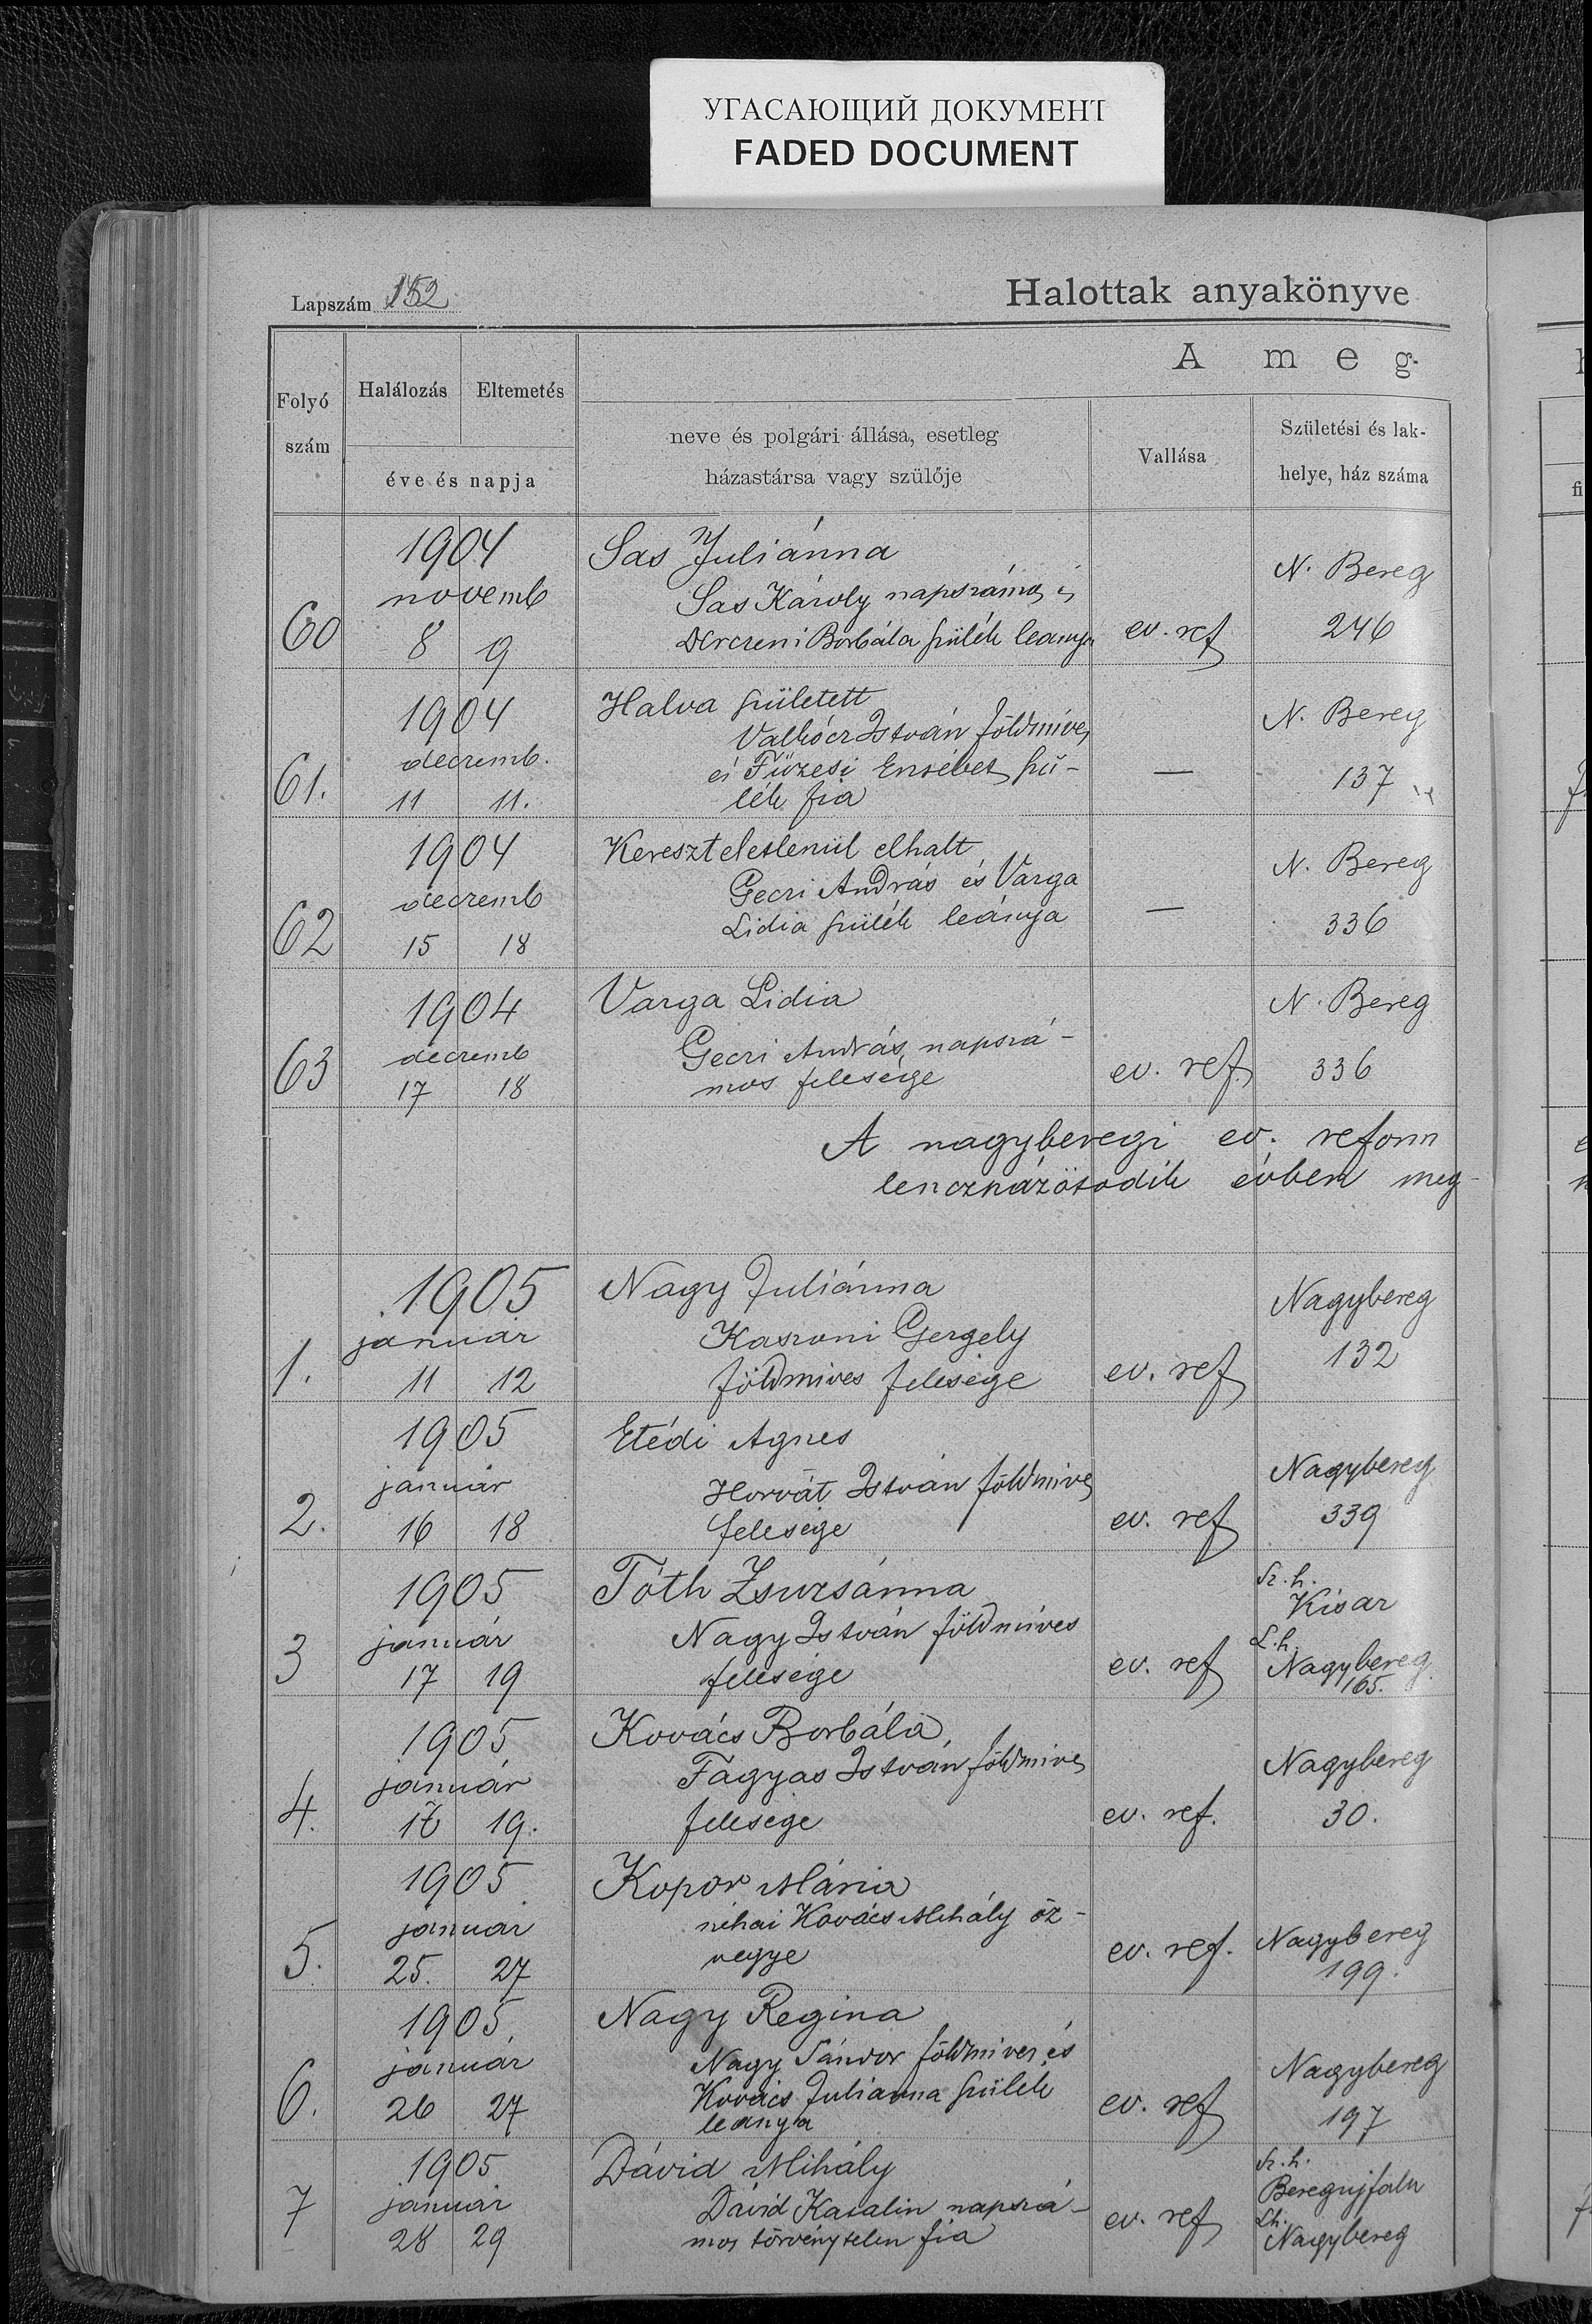 УГАСАЮЩИЙ ДОКУМЕНТ
FADED DOCUMENT
Lapszám 152
Halottak anyakönyve
Folyó szám
Halálozás
Eltemetés
éve és napja
A meg-
neve és polgári állása, esetleg
házastársa vagy szülője
Vallása
Születési és lak-
helye, ház száma
60
1904
novemb
8 9
Sas Juliánna
Sas Károly napszámos és
Dercreni Borbála szülék leánya
ev. ref
N. Bereg
246
61.
1904
decremb.
11 11.
Halva született
Valkócz István földmives
és Füzesi Ersébet szü-
lék fia
—
N. Bereg
137
62
1904
decremb
15 18
Kereszteletlenül elhalt
Geczi András és Varga
Lidia szülék leánya
—
N. Bereg
336
63
1904
decremb
17 18
Varga Lidia
Geczi András, napszá-
mos felesége
ev. ref.
N. Bereg
336
A nagyberegi ev. reform
lenczházötödik évben meg-
1.
1905
január
11 12
Nagy Juliánna
Kaszoni Gergely
földmives felesége
ev. ref
Nagybereg
132
2.
1905
január
16 18
Etédi Agnes
Horvát István földmives
felesége
ev. ref
Nagybereg
339
3
1905
január
17 19
Tóth Zsuzsánna
Nagy István földmíves
felesége
ev. ref
Sz. h.
Kisar
L. h.
Nagybereg
165.
4.
1905
január
19.
Kovács Borbála
Fagyas István földmives
felesége
ev. ref.
Nagybereg
30.
5.
1905
január
25. 27
Kopor Mária
néhai Kovács Mihály öz-
vegye
ev. ref.
Nagybereg
199.
6.
1905
január
26 27
Nagy Regina
Nagy Sándor földmives és
Kovács Julianna szülék
leánya
ev. ref
Nagybereg
197
7
1905
január
28 29
Dávid Mihály
Dávid Katalin napszá-
mos törvénytelen fia
ev. ref
Sz. h.
Beregujfalu
Lh.
Nagybereg